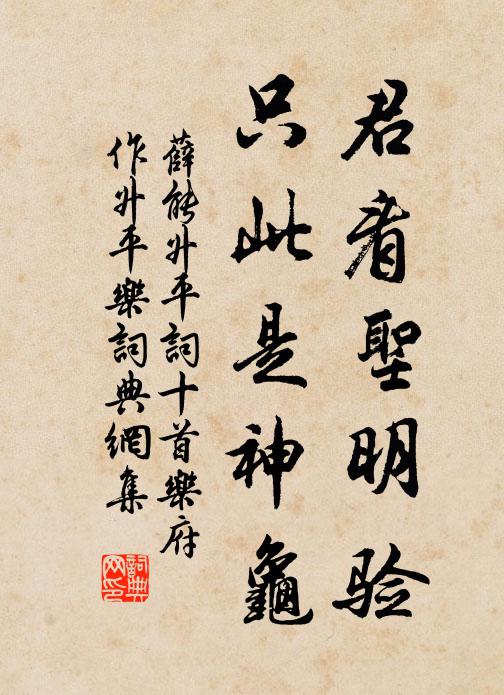 君看聖明验
只此是神龜
薛能升平詞十首樂府
作升平樂詞典網集
詞典网印